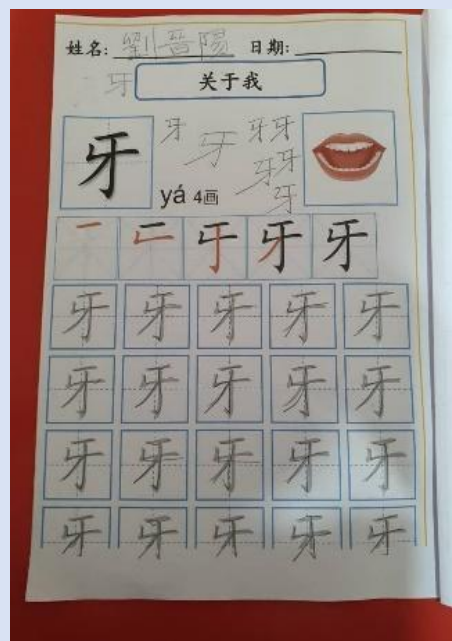 姓名: 劉晉陽 日期:
牙 关于我
牙 牙 牙 牙 牙
牙 牙
牙
yá 4画
一 二 于 牙 牙
牙 牙 牙 牙 牙
牙 牙 牙 牙 牙
牙 牙 牙 牙 牙
牙 牙 牙 牙 牙